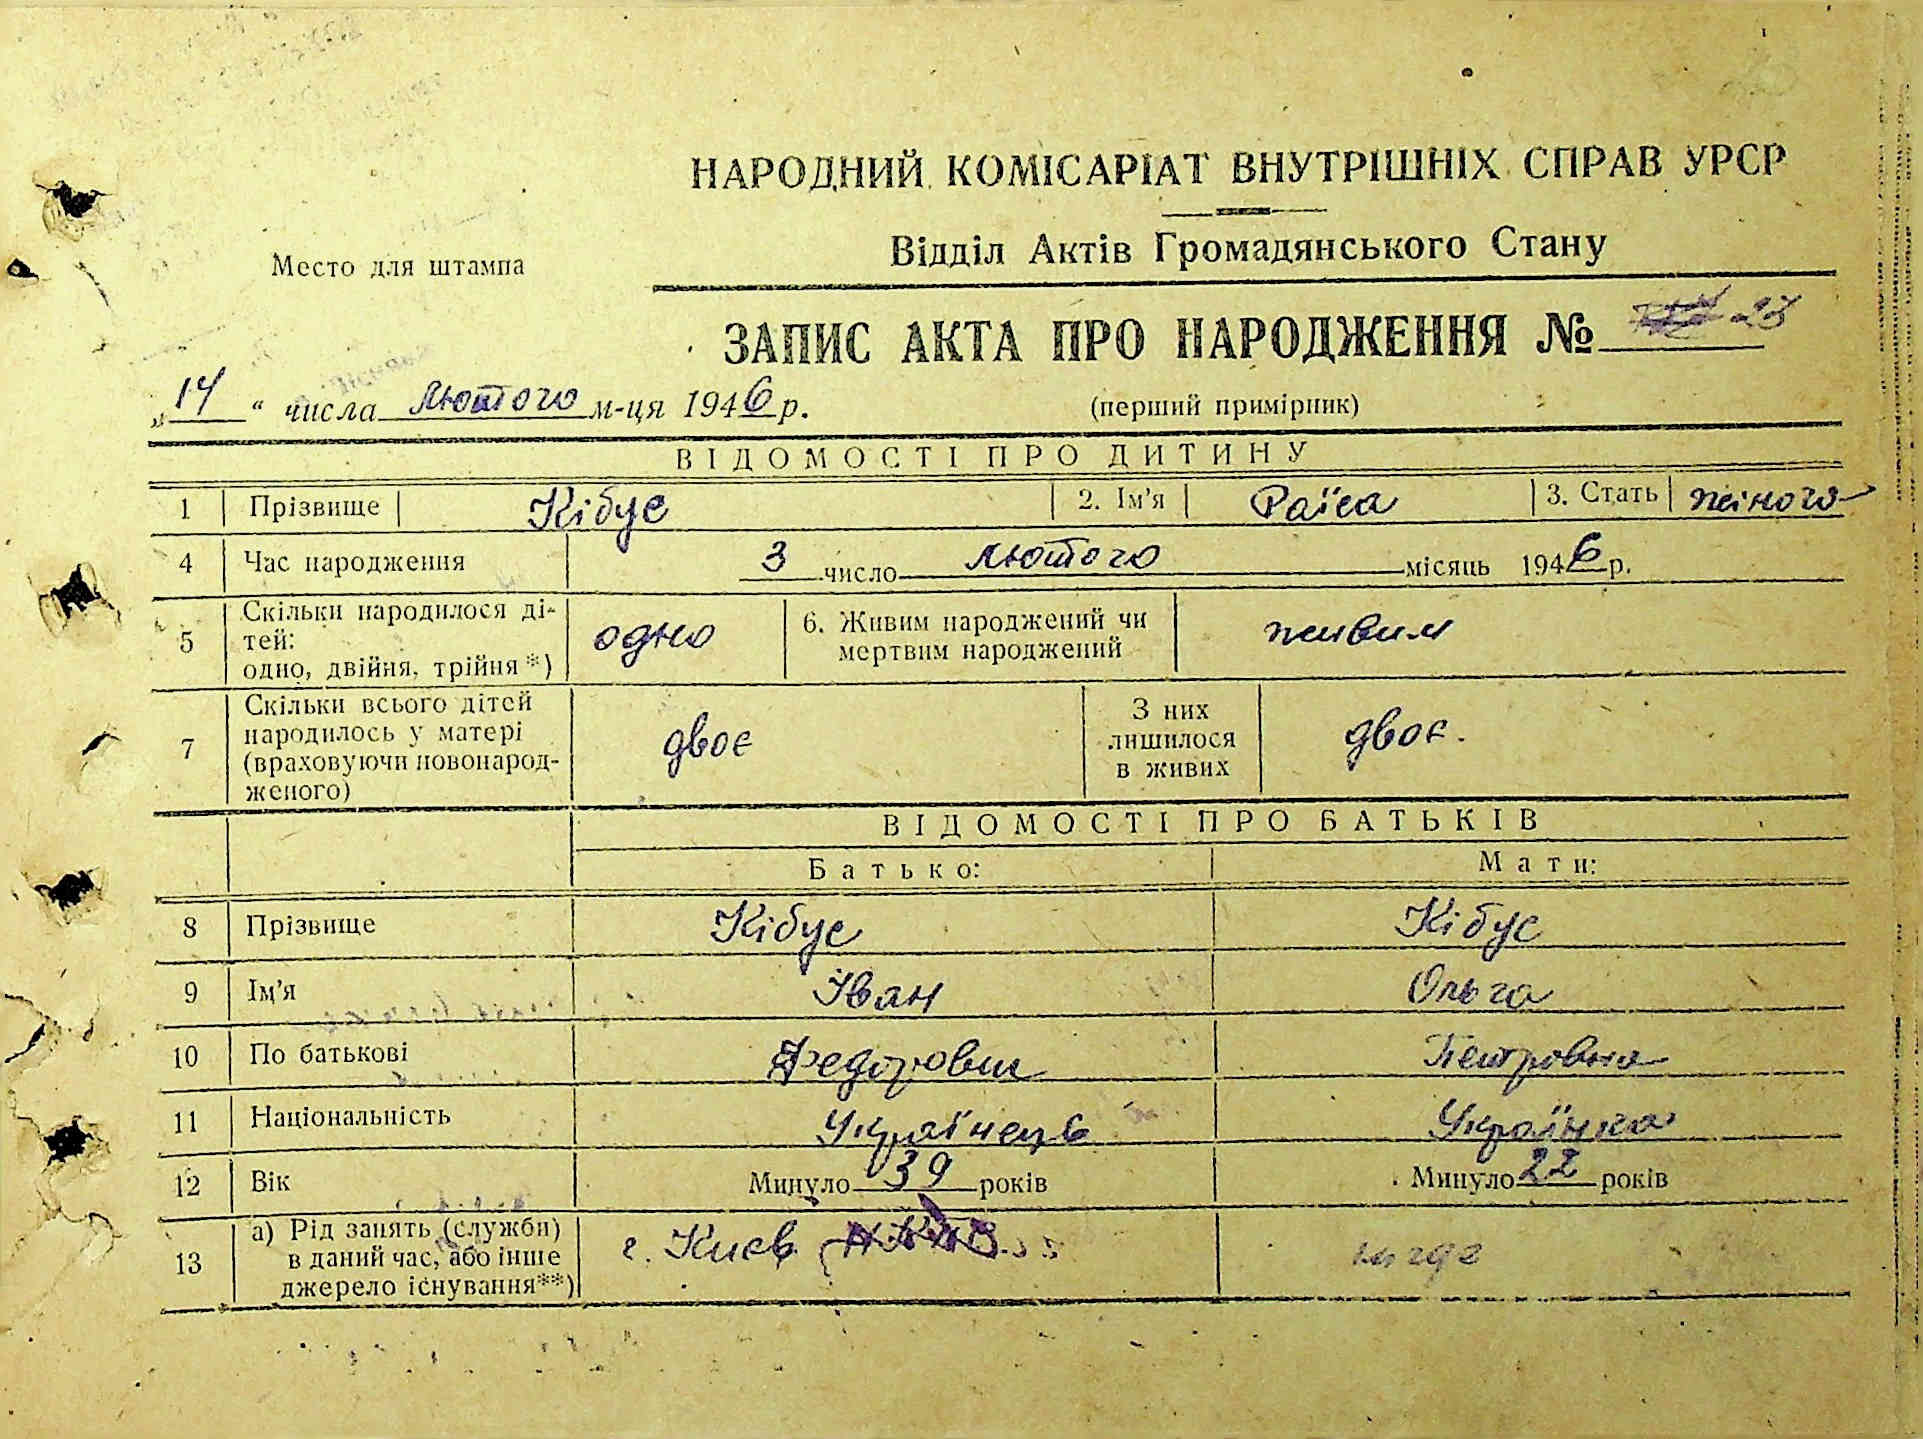 НАРОДНИЙ КОМІСАРІАТ ВНУТРІШНІХ СПРАВ УРСР
Відділ Актів Громадянського Стану
Место для штампа
ЗАПИС АКТА ПРО НАРОДЖЕННЯ № 23
„14“ числа лютого м-ця 1946 р.
(перший примірник)
ВІДОМОСТІ ПРО ДИТИНУ
1 Прізвище Кібус 2. Ім'я Раїса 3. Стать жіноча
4 Час народження 3 число лютого місяць 1946 р.
5 Скільки народилося ді-
тей:
одно, двійня, трійня*) одно
6. Живим народжений чи
мертвим народжений живим
7 Скільки всього дітей
народилось у матері
(враховуючи новонарод-
женого) двоє
З них
лишилося
в живих двоє.
ВІДОМОСТІ ПРО БАТЬКІВ
Батько: Мати:
8 Прізвище Кібус Кібус
9 Ім'я Іван Ольга
10 По батькові Федорович Петровна
11 Національність Українець Українка
12 Вік Минуло 39 років Минуло 22 років
13 а) Рід занять (служби)
в даний час, або інше
джерело існування**)
г. Києв